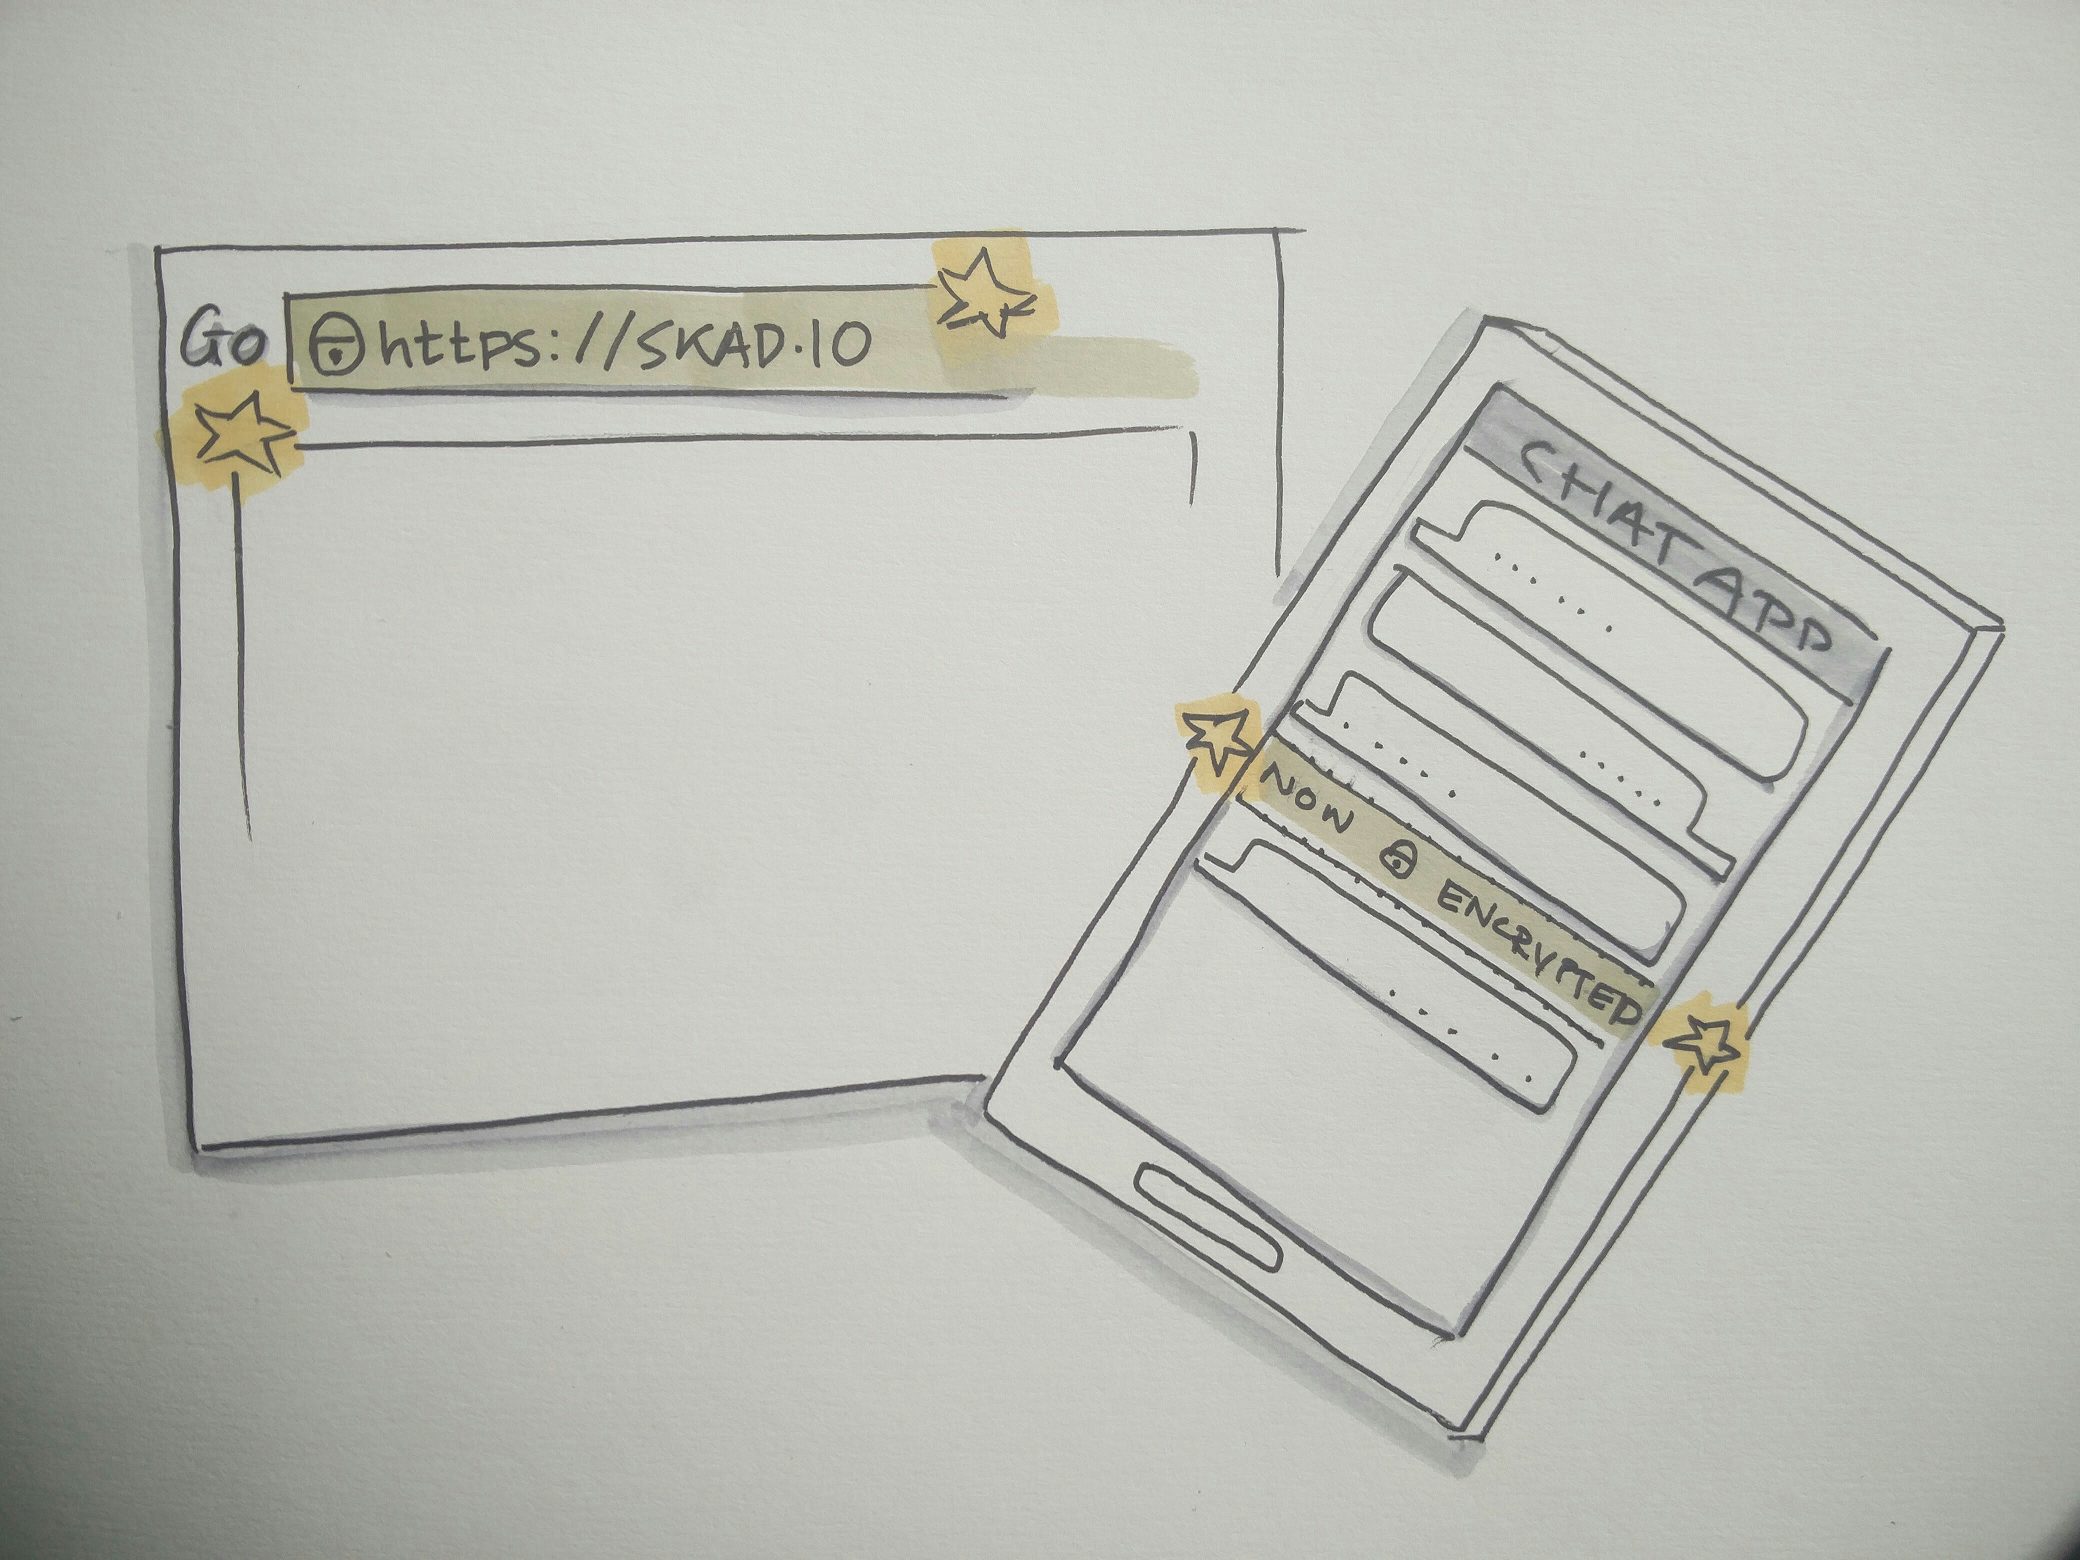 Go https://SKAD.IO
CHAT APP
NOW ENCRYPTED